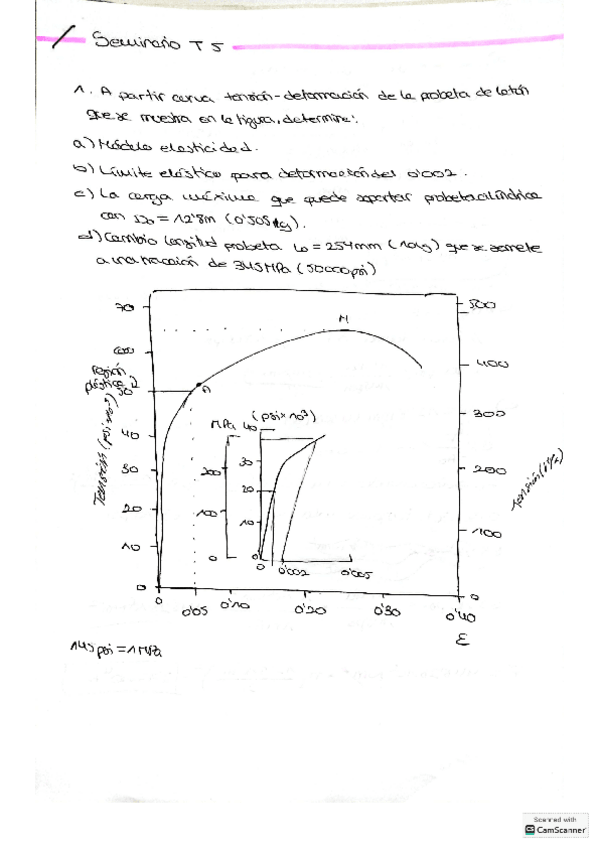 Seminario T5
1. A partir curva tensión-deformación de la probeta de latón
que se muestra en la figura, determine:
a) Módulo elasticidad.
b) Límite elástico para deformación del 0'002.
c) La carga máxima que puede soportar probeta cilíndrica
con = 12'8m (0'505
d) Cambio longitud probeta lo = 254mm ( que se somete
a una tracción de 345MPa (50000psi)
70 M 500
región 400
plástica A
50 MPa 40 (psi×10³) 300
40
Tensión (psi×10³) 30 200 30 200 Tensión
20 100 20
10 10 100
0 0 0 0
0 0'002 0'005
0 0'05 0'10 0'20 0'30 0'40
ε
145psi = 1MPa
Scanned with
CS CamScanner